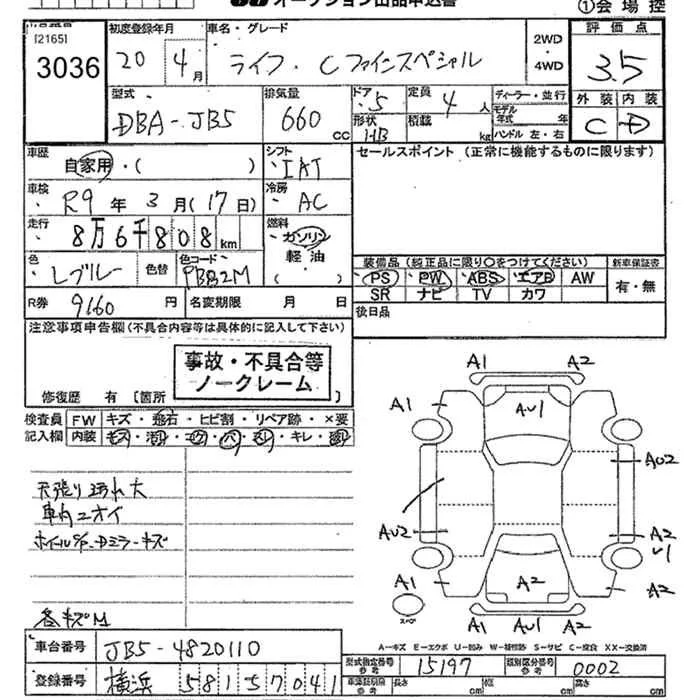 オークション出品申込書
①会場控
出品番号
[2165]
3036
初度登録年月
20 4月
車名・グレード
ライフ・Cファインスペシャル
2WD
・
4WD
評価点
3.5
外装 内装
C D
型式
DBA-JB5
排気量
660 CC
ドア 5
形状 HB
定員 4人
積載 kg
ディーラー・並行
モデル年式 年
ハンドル 左・右
車歴
自家用・( )
シフト
IAT
セールスポイント(正常に機能するものに限ります)
車検
R9年3月(17日)
冷房
AC
走行
8万6千808km
燃料
ガソリン
軽油
( )
色
Lブルー
色替
色コード
PB82M
装備品(純正品に限り○をつけてください)
新車保証書
PS PW ABS エアB AW
SR ナビ TV カワ
有・無
R券 9160円
名変期限 月 日
後日品
注意事項申告欄(不具合内容等は具体的に記入して下さい)
事故・不具合等
ノークレーム
修復歴 有〔箇所
検査員
記入欄
FW キズ・飛石・ヒビ割・リペア跡・×要
内装
天張り汚れ大
車内ニオイ
各キズM
A1 A2
A1 AU1
AU2
AU2 A2
U1
A1 A2 A2
A1 AU1 A2
A-キズ E-エクボ U-凹み W-補修跡 S-サビ C-腐食 XX-交換済
車台番号 JB5-4820110
型式指定番号 参考 15197
類別区分番号 参考 0002
登録番号 横浜 581 57041
長さ cm 幅 cm 高さ cm